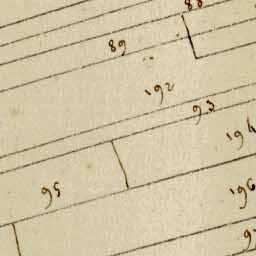 88
89
192
93
194
95
196